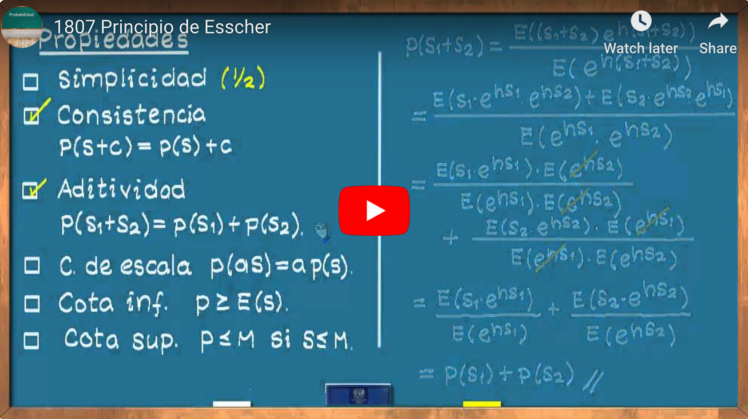 1807 Principio de Esscher
Watch later
Share
Propiedades
Simplicidad (1/2)
Consistencia
p(S+c) = p(S) + c
Aditividad
p(S1+S2) = p(S1) + p(S2).
C. de escala p(aS) = a p(S).
Cota inf. p ≥ E(S).
Cota sup. p ≤ M si S ≤ M.
p(S1+S2) = E((S1+S2) e^h(S1+S2)) / E(e^h(S1+S2))
= E(S1·e^hS1·e^hS2) + E(S2·e^hS2·e^hS1) / E(e^hS1·e^hS2)
= E(S1·e^hS1)·E(e^hS2) / E(e^hS1)·E(e^hS2)
+ E(S2·e^hS2)·E(e^hS1) / E(e^hS1)·E(e^hS2)
= E(S1·e^hS1) / E(e^hS1) + E(S2·e^hS2) / E(e^hS2)
= p(S1) + p(S2) //